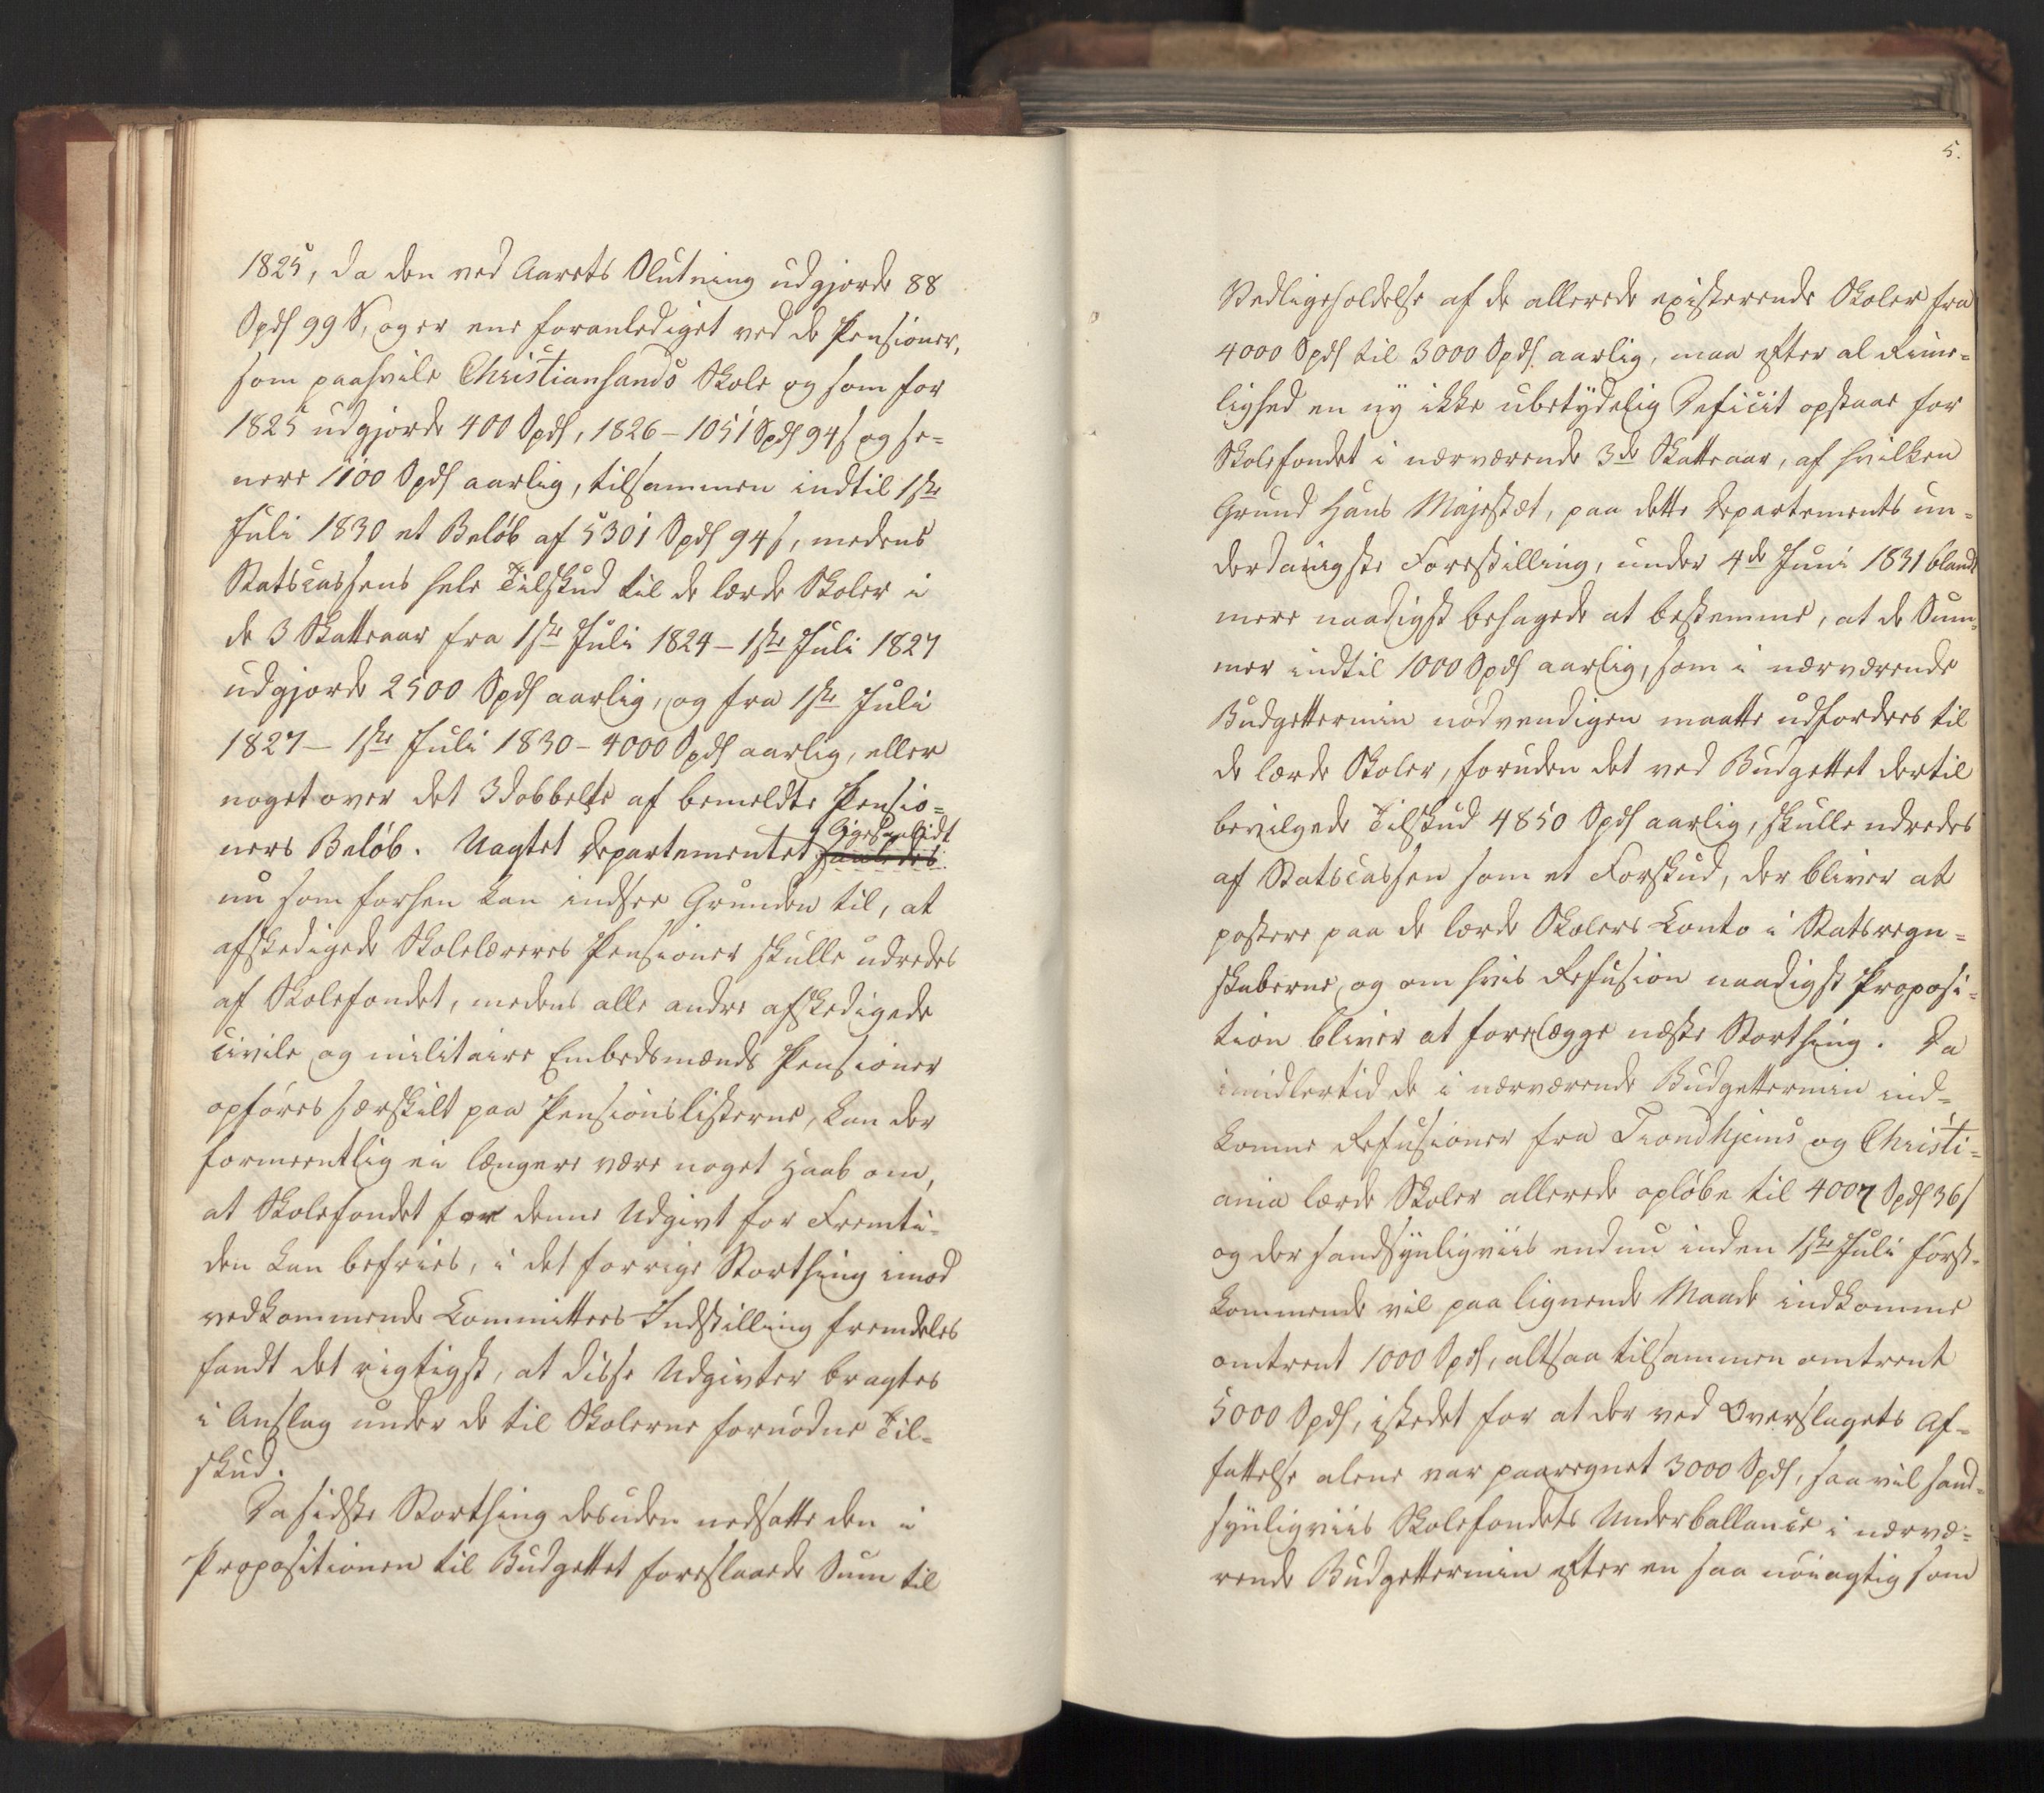 1825, da den ved Aarets Slutning udgjorde 88
Spds 99 S, og er ene foranlediget ved de Pensioner,
som paahvile Christiansands Skole og som for
1825 udgjorde 400 Spds, 1826 – 1051 Spds 94 s og se=
nere 1100 Spds aarlig, tilsammen indtil 1ste
Juli 1830 et Beløb af 5301 Spds 94 s, medens
Statscassens hele Tilskud til de lærde Skoler i
de 3 Skatteaar fra 1ste Juli 1824 – 1ste Juli 1827
udgjorde 2500 Spds aarlig, og fra 1ste Juli
1827 – 1ste Juli 1830 – 4000 Spds aarlig, eller
noget over det 3dobbelte af bemeldte Pensio=
ligesaalidt
ners Beløb. Uagtet Departementet saaledes
nu som forhen kan indsee Grunden til, at
afskedigede Skolelæreres Pensioner skulle udredes
af Skolefondet, medens alle andre afskedigede
civile og militaire Embedsmænds Pensioner
opføres særskilt paa Pensionslisterne, kan der
formeentlig ei længere være noget Haab om,
at Skolefondet for denne Udgivt for Fremti=
den kan befries, i det forrige Storthing imod
vedkommende Committees Indstilling fremdeles
fandt det rigtigst, at disse Udgivter bragtes
i Anslag under de til Skolerne fornødne Til=
skud.
Da sidste Storthing desuden nedsatte den i
Propositionen til Budgettet foreslaaede Sum til
5.
Vedligeholdelse af de allerede existerende Skoler fra
4000 Spds til 3000 Spds aarlig, maa efter al Rime=
lighed en ny ikke ubetydelig Deficit opstaae for
Skolefondet i nærværende 3de Skatteaar, af hvilken
Grund Hans Majestæt, paa dette Departements un=
derdanigste Forestilling, under 4de Juni 1831 blandt
mere naadigst behagede at bestemme, at de Sum=
mer indtil 1000 Spds aarlig, som i nærværende
Budgettermin nødvendigen maatte udfordres til
de lærde Skoler, foruden det ved Budgettet dertil
bevilgede Tilskud 4850 Spds aarlig, skulle udredes
af Statscassen som et Forskud, der bliver at
postere paa de lærde Skolers Conto i Statsregn=
skaberne, og om hvis Refusion naadigst Proposi=
tion bliver at forelægge næste Storthing. Da
imidlertid de i nærværende Budgettermin ind=
komne Refusioner fra Trondhjems og Christi=
ania lærde Skoler allerede opløbe til 4007 Spds 36 s
og der sandsynligviis endnu inden 1ste Juli først=
kommende vil paa lignende Maade indkomme
omtrent 1000 Spds, altsaa tilsammen omtrent
5000 Spds, istedet for at der ved Overslagets Af=
fattelse alene var paaregnet 3000 Spds, saa vil sand=
synligviis Skolefondets Underballance i nærvæ=
rende Budgettermin efter en saa nøiagtig som